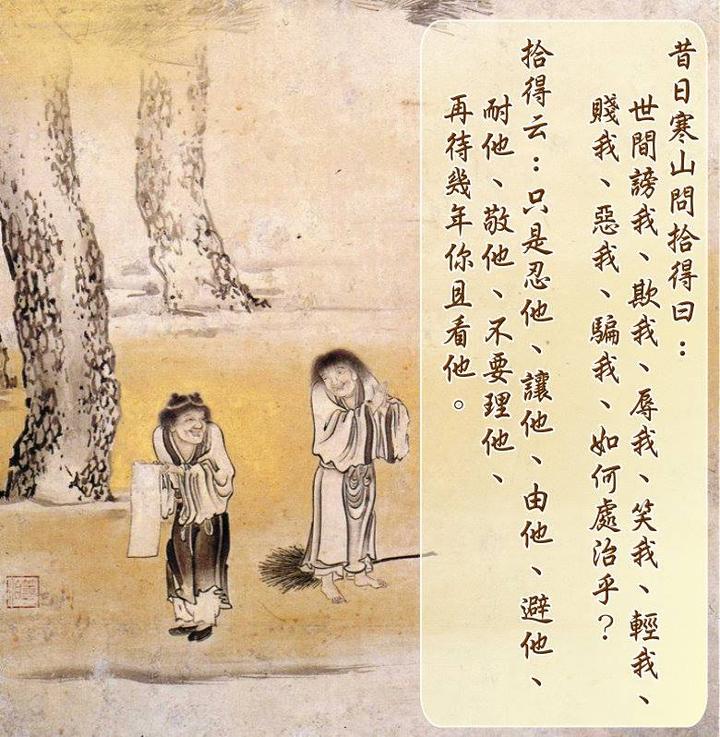 昔日寒山問拾得曰：
世間謗我、欺我、辱我、笑我、輕我、
賤我、惡我、騙我、如何處治乎？
拾得云：只是忍他、讓他、由他、避他、
耐他、敬他、不要理他、
再待幾年你且看他。